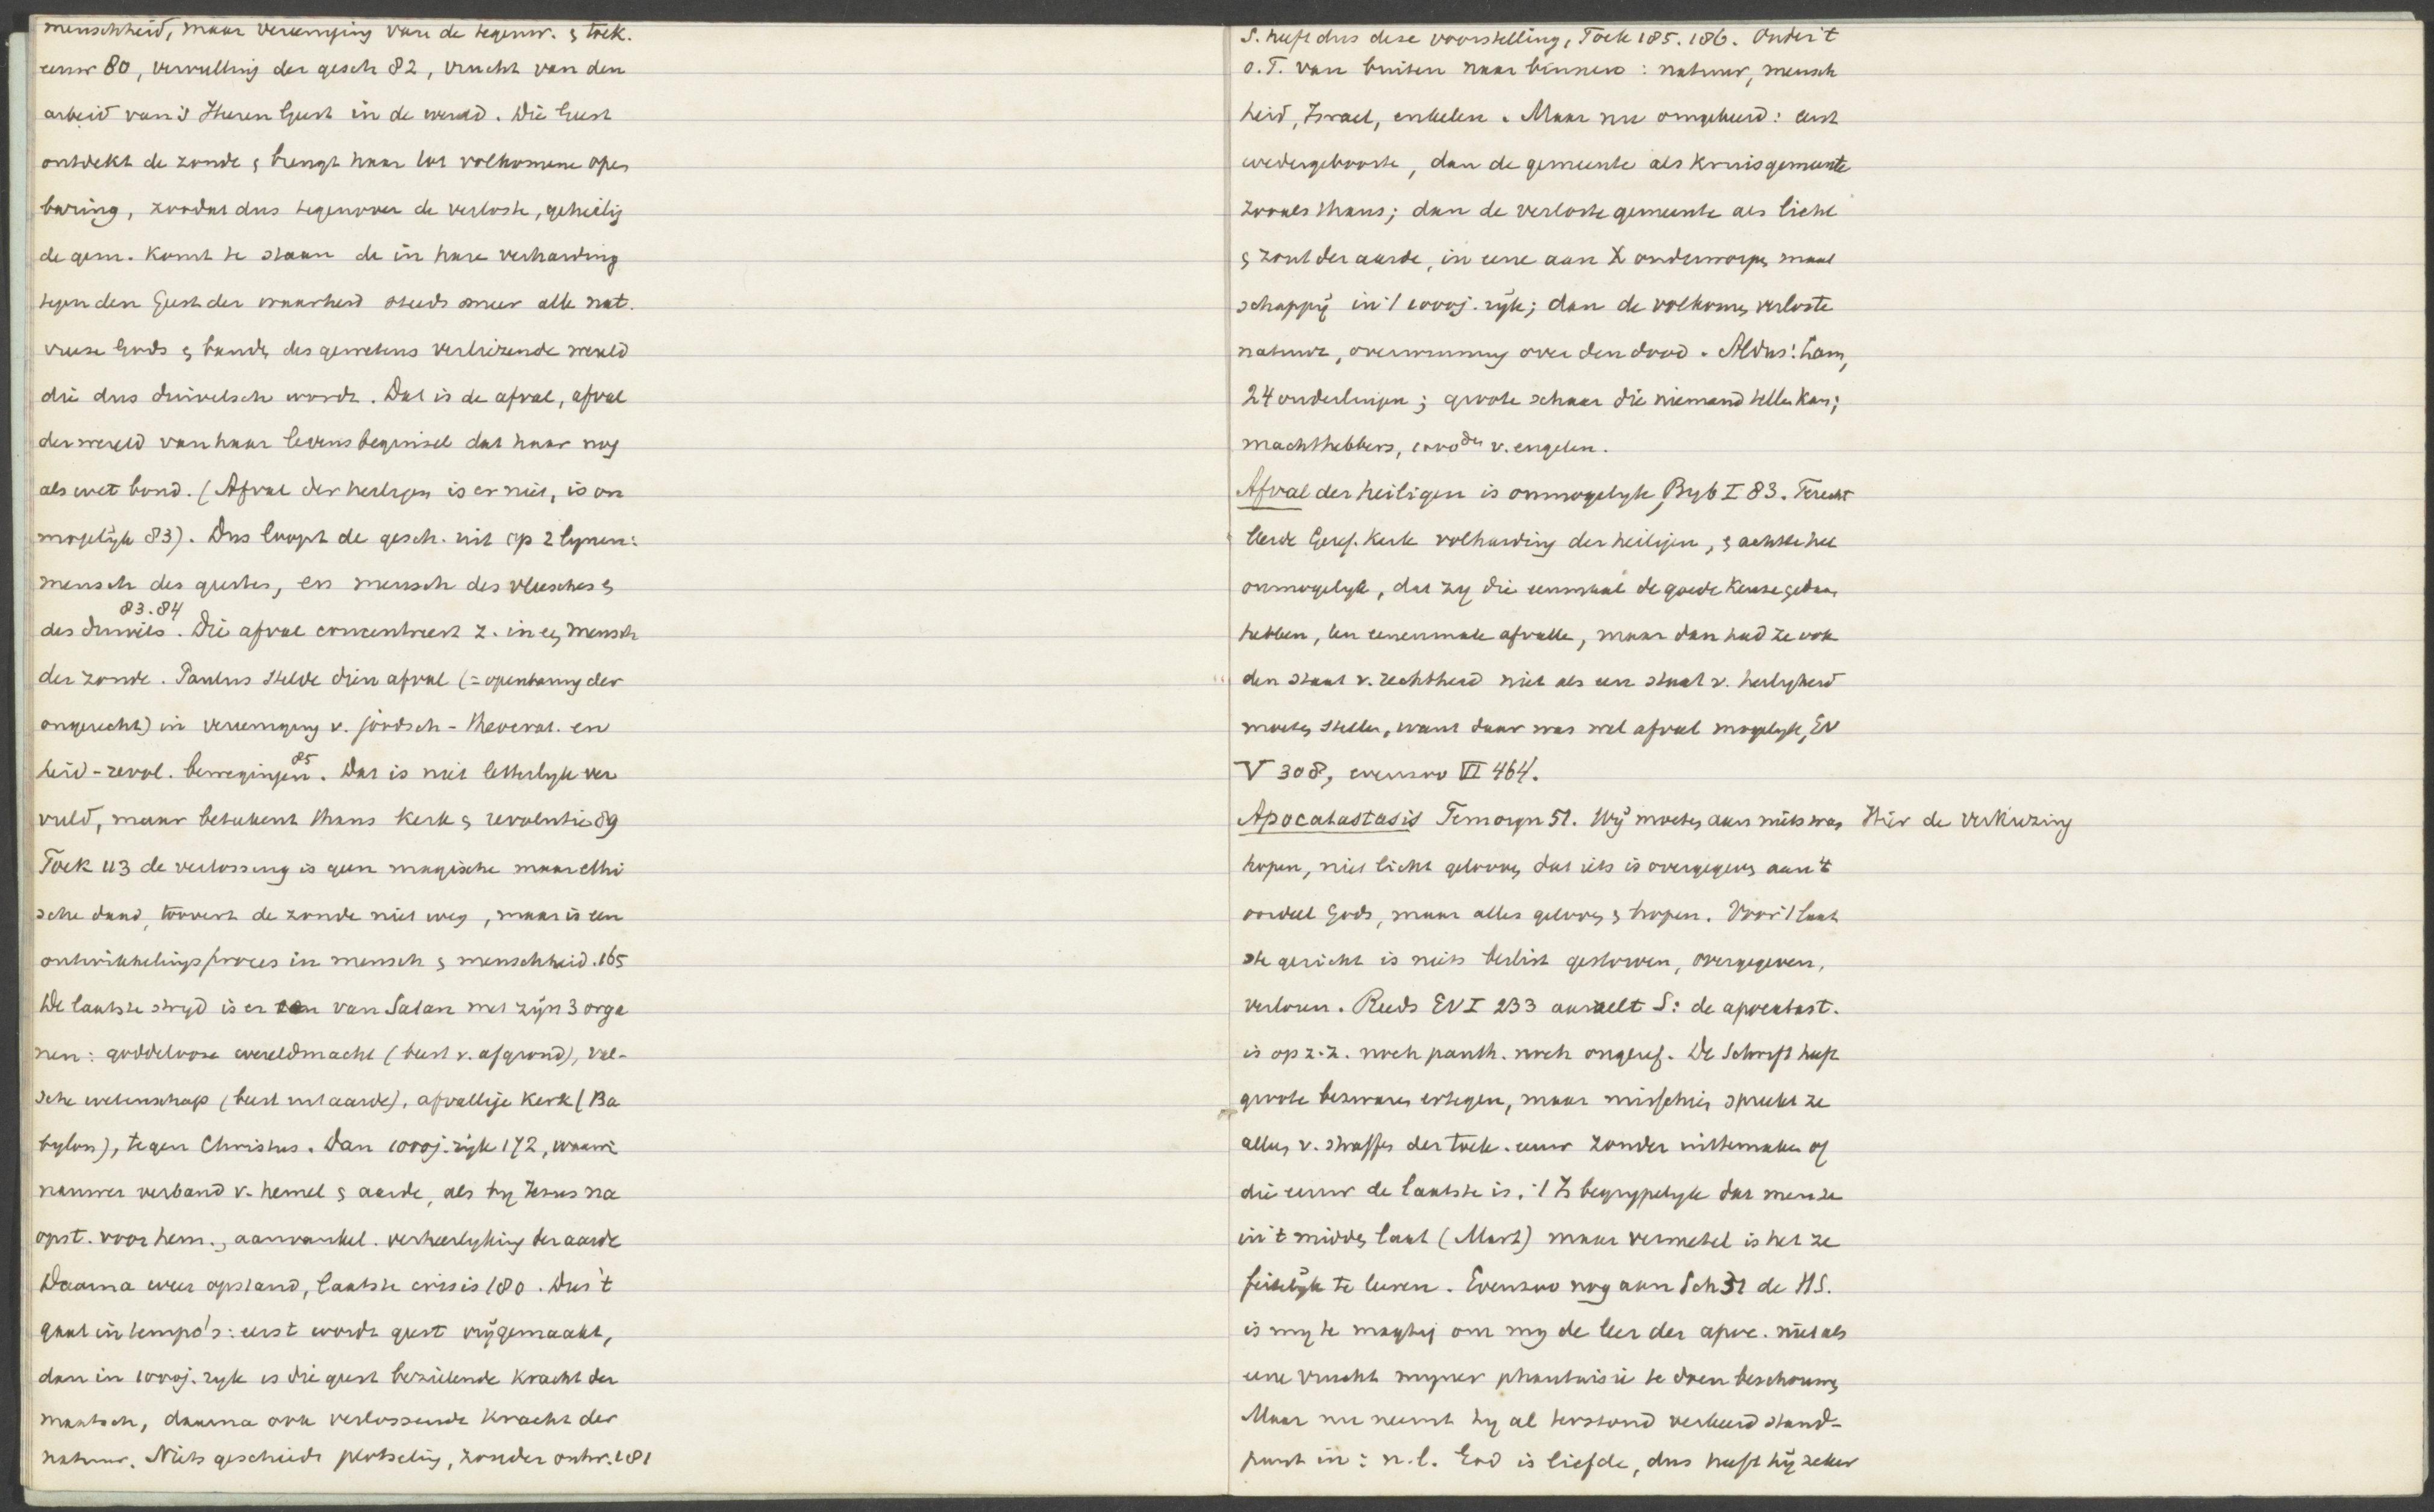 menschheid, maar vereeniging van de tegenw. & toek.
eeuw 80, vervulling der gesch 82, vrucht van den
arbeid van 's Heeren Geest in de wereld. Die Geest
ontdekt de zonde & brengt haar tot volkomene open
baring, zoodat dus tegenover de verloste, geheilig
de gem. komt te staan de in hare verharding
tegen den Geest der waarheid steeds meer alle nat.
vreeze Gods & banden des gewetens verliezende wereld
die dus duivelsch wordt. Dat is de afval, afval
der wereld van haar levensbeginsel dat haar nog
als wet bond. (Afval der heiligen is er niet, is on
mogelijk 83). Dus loopt de gesch. uit op 2 lijnen:
mensch des geestes, en mensch des vleesches &
83.84
des duivels. Die afval concentreert z. in een mensch
der zonde. Paulus stelde dien afval (= openbaring der
ongerecht) in vereeniging v. joodsch-theocrat. en
heid-revol. bewegingen 85. Dat is niet letterlijk ver
vuld, maar beteekent thans kerk & revolutie 89
Toek 113 de verlossing is geen magische maar ethi
sche daad, toovert de zonde niet weg, maar is een
ontwikkelingsproces in mensch & menschheid. 165
De laatste strijd is er een van Satan met zijn 3 orga
nen: goddelooze wereldmacht (beest v. afgrond), val-
sche wetenschap (beest uit aarde), afvallige kerk (Ba
bylon), tegen Christus. Dan 1000j. rijk 172, waarin
nauwer verband v. hemel & aarde, als bij Jezus na
opst. voor hem., aanvankel. verheerlijking der aarde
Daarna weer opstand, laatste crisis 180. Dus 't
gaat in tempo's: eerst wordt geest vrijgemaakt,
dan in 1000j. rijk is die geest bezielende kracht der
maatsch, daarna ook verlossende kracht der
natuur. Niets geschiedt plotseling, zonder ontw. 181
S. heeft dus deze voorstelling, Toek 185. 186. Onder 't
O.T. van buiten naar binnen: natuur, mensch
heid, Israel, enkelen. Maar nu omgekeerd: eerst
wedergeboorte, dan de gemeente als kruisgemeente
zooals thans; dan de verloste gemeente als licht
& zout der aarde, in eene aan X onderworpen maat
schappij in 't 1000j. rijk; dan de volkomen verloste
natuur, overwinning over den dood. Aldus: Lam,
24 ouderlingen; groote schaar die niemand tellen kan;
machthebbers, 1000den v. engelen.
Afval der heiligen is onmogelijk, Byb I 83. Terecht
leerde Geref. Kerk volharding der heiligen, & achtte het
onmogelijk, dat zij die eenmaal de goede keuze gedaan
hebben, ten eenenmale afvallen, maar dan had ze ook
den staat v. rechtheid niet als een staat v. heiligheid
moeten stellen, want daar was wel afval mogelijk, EV
V 308, evenzoo VI 464.
Apocatastasis Temorgn 51. Wij moeten aan niets wan Hier de verkiezing
hopen, niet licht gelooven dat iets is overgegeven aan 't
oordeel Gods, maar alles gelooven & hopen. Voor 't laat
ste gericht is niets beslist gestorven, overgegeven,
verloren. Reeds EV I 233 S: de apocatast.
is op z. z. noch panth. noch ongeref. De Schrift heeft
groote bezwaren ertegen, maar misschien spreekt ze
alleen v. straffen der toek. eeuw zonder uittemaken of
die eeuw de laatste is. 't Is begrijpelijk dat men ze
in 't midden laat (Mart) maar vermetel is het ze
feitelijk te leeren. Evenzoo nog aan Sch 31 de HS.
is mij te machtig om mij de leer der apoc. niet als
eene vrucht mijner phantaisie te doen beschouwen
Maar nu neemt hij al terstond verkeerd stand-
punt in: n.l. God is liefde, dus heeft hij zeker